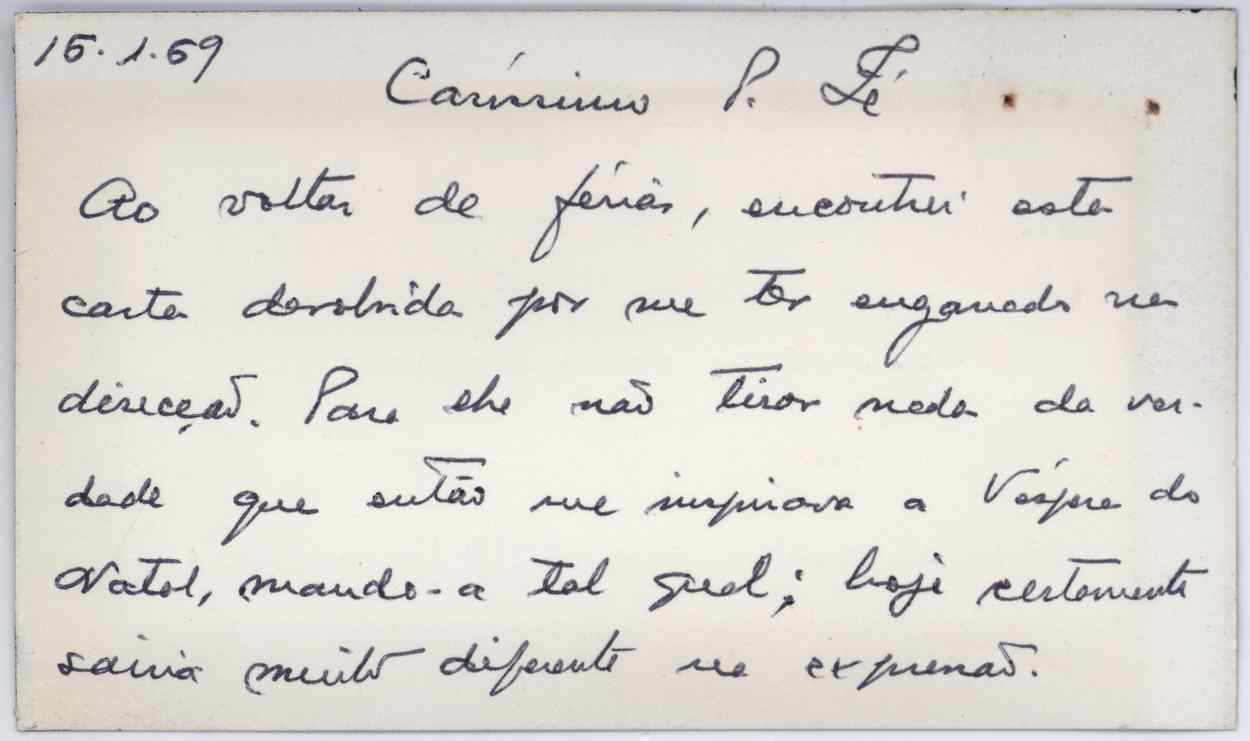 15.1.69
Caríssimo P. Zé
Ao voltar de férias, encontrei esta
carta devolvida por me ter enganado na
direcção. Para ela não tirar nada da ver-
dade que então me inspirava a Véspera do
Natal, mando-a tal qual; hoje certamente
sairia muito diferente na expressão.